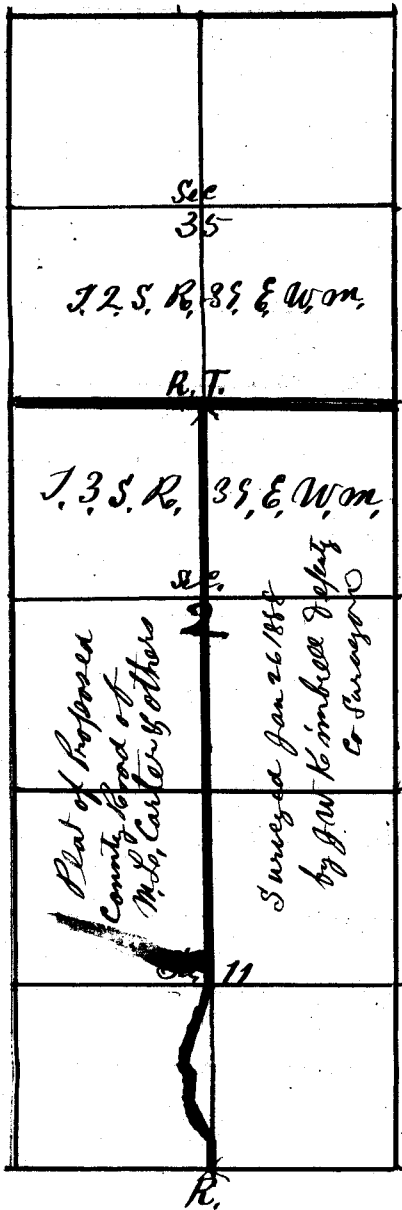 Sec
35
T. 2. S. R. 39, E. W. m.
R. T.
T. 3. S. R. 39, E. W. m.
Sec.
2
Plat of Proposed
County Road of
M. L. Carter & others
Surveyed Jan 26 1888
by J. W. Kimbrell Deputy
Co Surveyor
11
R.